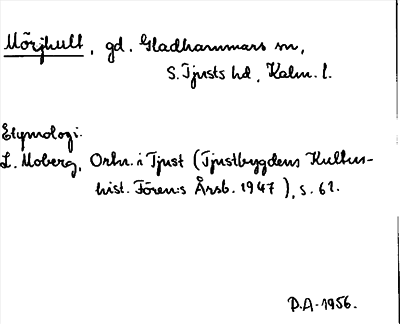 Mörjhult, gd. Gladhammars sn,
S. Tjusts hd, Kalm. l.
Etymologi.
L. Moberg, Ortn. i Tjust (Tjustbygdens Kultur-
hist. Fören:s Årsb. 1947), s. 61.
D.A. 1956.